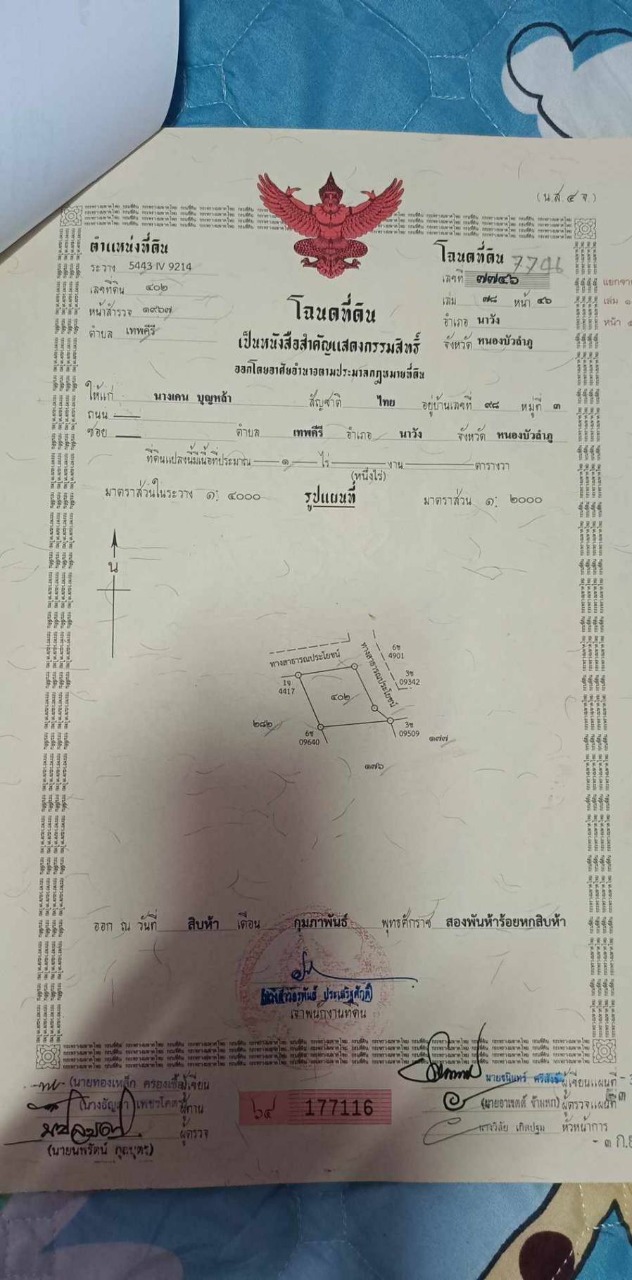 (น.ส. ๔ จ.)
ตำแหน่งที่ดิน
ระวาง 5443 IV 9214
เลขที่ดิน ๔๐๒
หน้าสำรวจ ๑๙๖๗
ตำบล เทพคีรี
โฉนดที่ดิน 7746
เลขที่ ๗๗๔๖
เล่ม ๗๘ หน้า ๔๖
อำเภอ นาวัง
จังหวัด หนองบัวลำภู
เล่ม
หน้า
โฉนดที่ดิน
เป็นหนังสือสำคัญแสดงกรรมสิทธิ์
ออกโดยอาศัยอำนาจตามประมวลกฎหมายที่ดิน
ให้แก่ นางเคน บุญหล้า สัญชาติ ไทย อยู่บ้านเลขที่ ๙๘ หมู่ที่ ๓
ถนน
ซอย ตำบล เทพคีรี อำเภอ นาวัง จังหวัด หนองบัวลำภู
ที่ดินแปลงนี้มีเนื้อที่ประมาณ ๑ ไร่ งาน ตารางวา
(หนึ่งไร่)
มาตราส่วนในระวาง ๑: ๔๐๐๐ รูปแผนที่ มาตราส่วน ๑: ๒๐๐๐
น
ทางสาธารณประโยชน์
ทางสาธารณประโยชน์
6ช 4901
1ข 4417
3ช 09342
๔๐๒
๒๘๒
6ช 09640
3ช 09509
๑๗๗
๑๗๖
ออก ณ วันที่ สิบห้า เดือน กุมภาพันธ์ พุทธศักราช สองพันห้าร้อยหกสิบห้า
เจ้าพนักงานที่ดิน
ผู้เขียน
ผู้ทาน
ผู้ตรวจ
(นายนพรัตน์ กูลบุตร)
๖๔ 177116
ผู้เขียนแผนที่
ผู้ตรวจแผนที่
นางวิลัย เกิดปฐม หัวหน้าการ